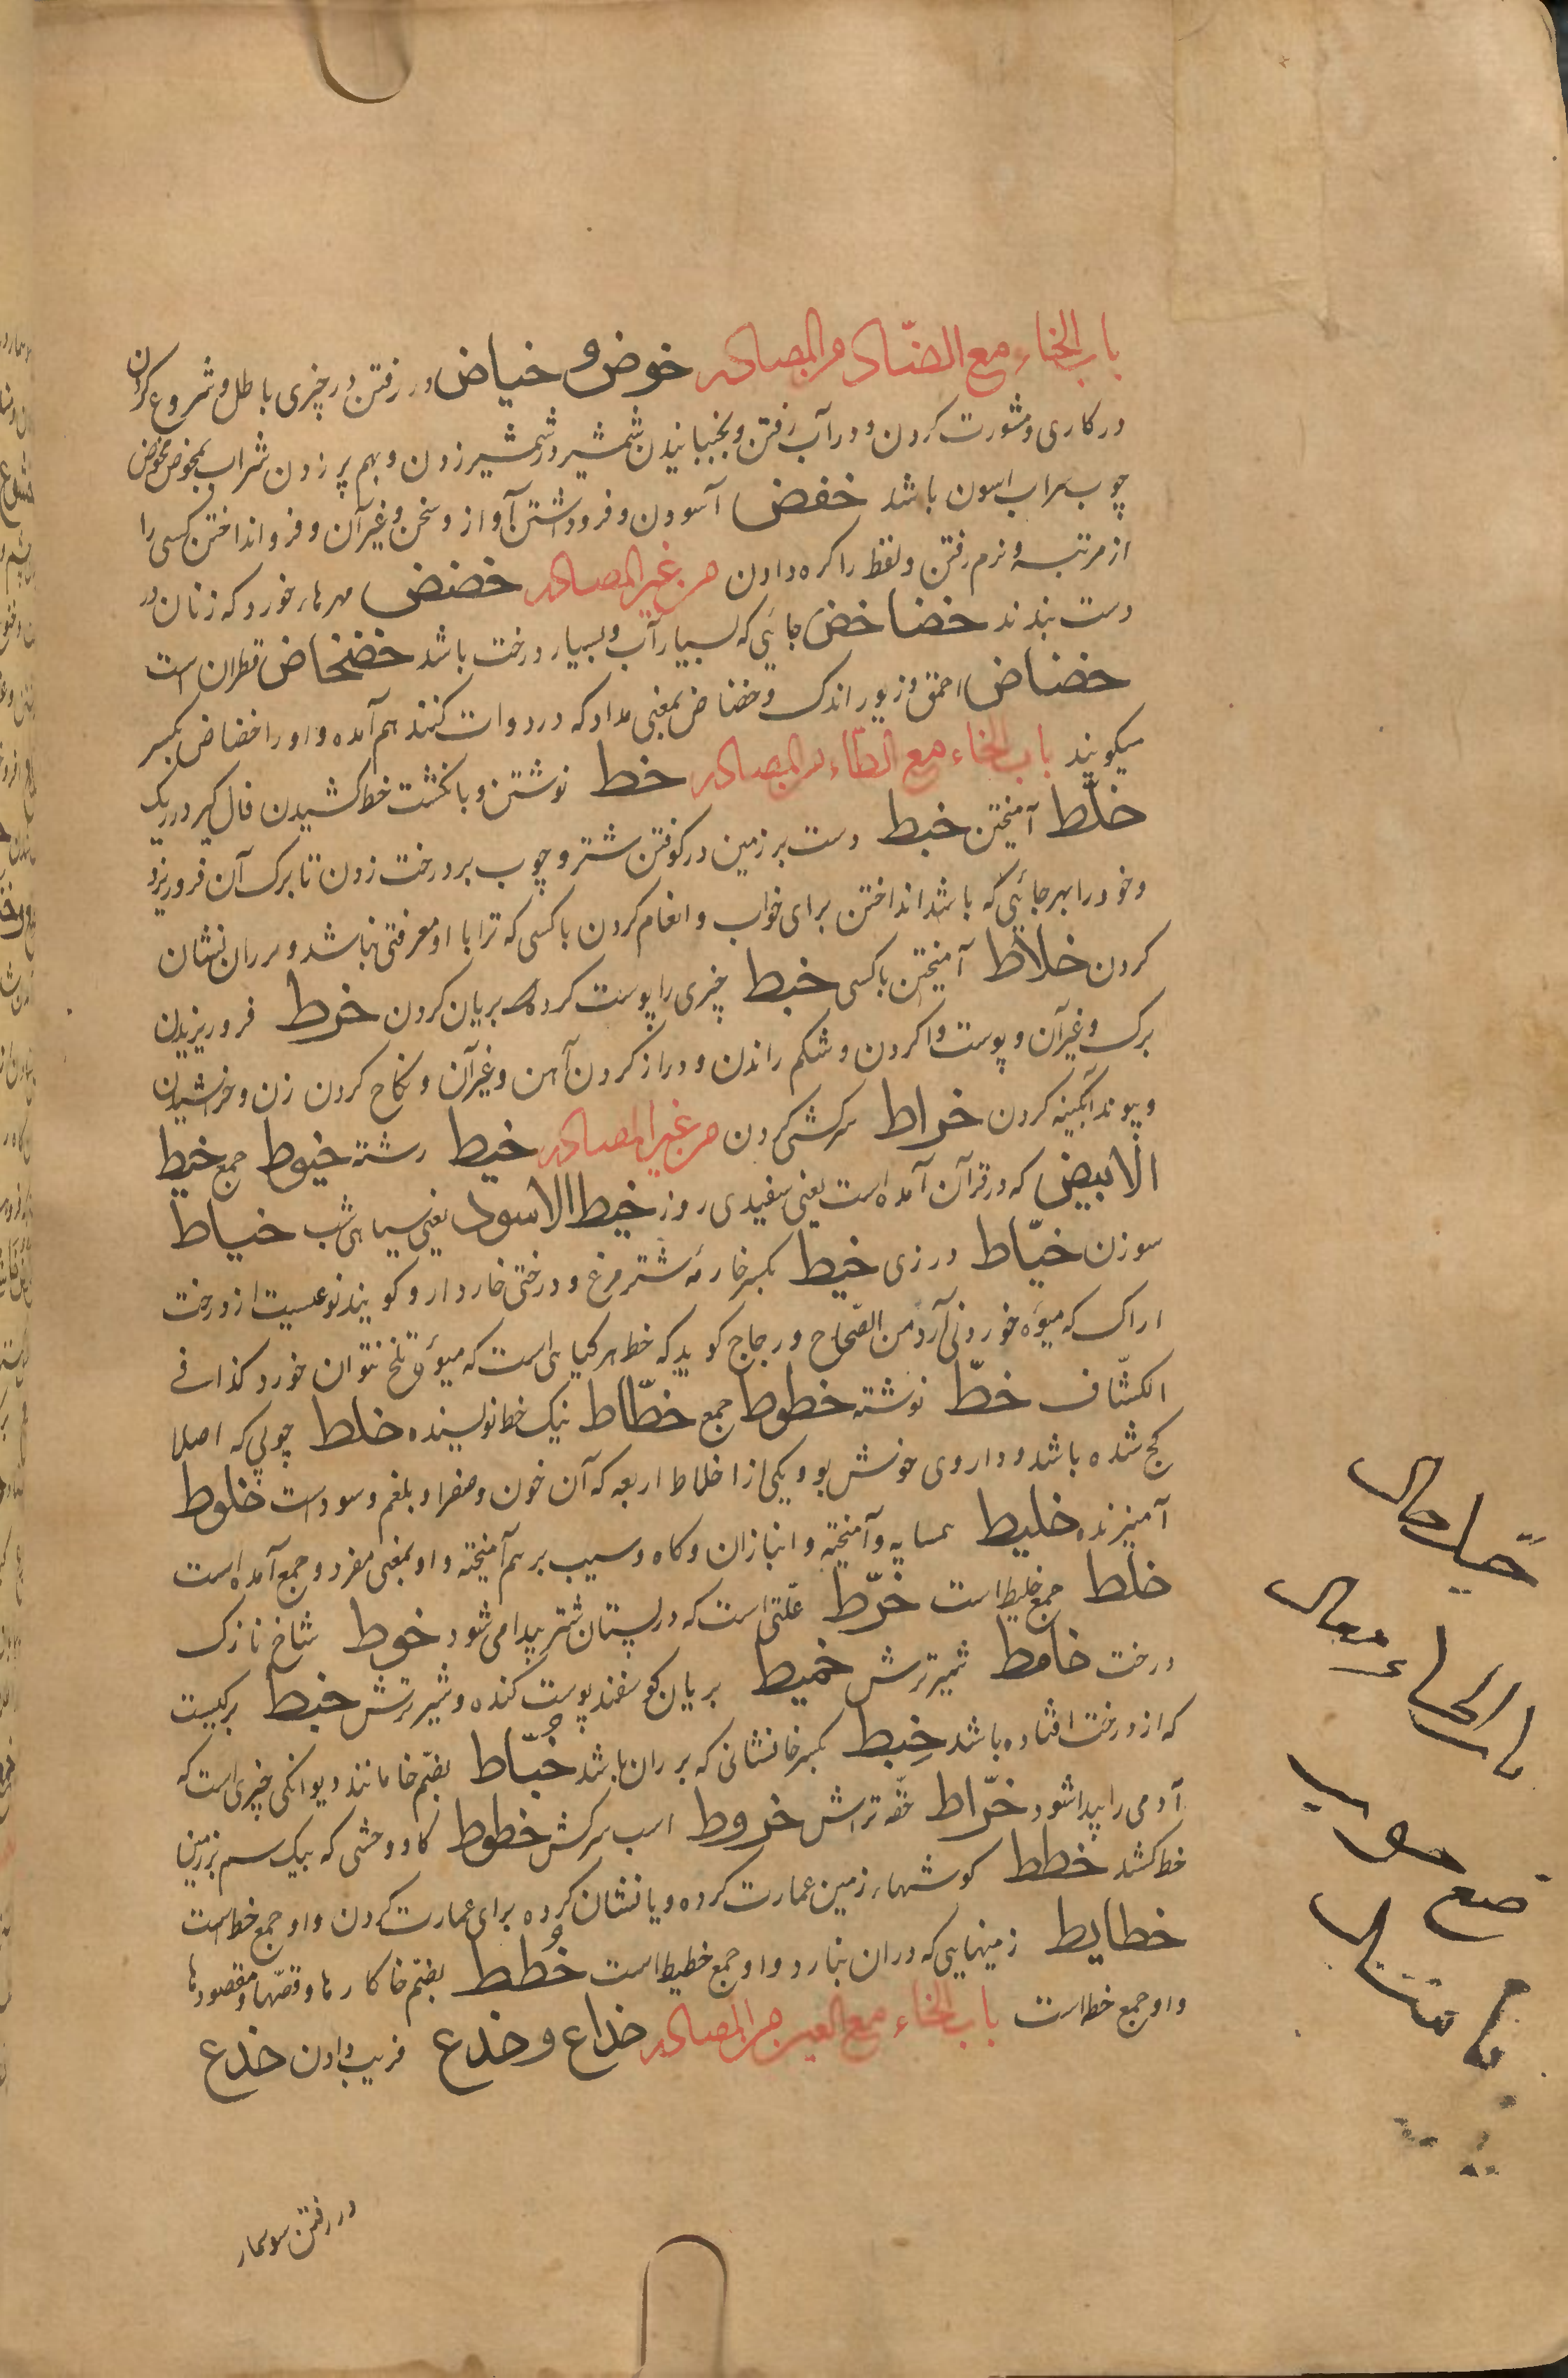 باب الخاء مع الضّاد من المصادر خوض و خیاض در رفتن در چیزی باطل و شروع کردن
در کاری و مشورت کردن و در آب رفتن و بجنبانیدن شمشیر در شمشیر زدن و بهم بر زدن شراب بمخوض مخوض
چوب شراب باشد خفض آسودن و فرو داشتن آواز و سخن و غیر آن و فرو انداختن کسی را
از مرتبه و نرم رفتن و لفظ را کره دادن من غیر المصادر خضض مهرهاء خورد که زنان در
دست بندند خضاخض جائی که بسیار آب و بسیار درخت باشد خضخاض قطران است
خضاض احمق و زیور اندک و خضاض بمعنی مداد که در دوات کنند هم آمده و او را خضاض بکسر
میکویند باب الخاء مع الطاء من المصادر خط نوشتن و بانکشت خط کشیدن فال کیر در ریک
خلّط آمیختن خبط دست بر زمین در کوفتن شتر و چوب بر درخت زدن تا برک آن فرو ریزد
و خود را بهر جائی که باشد انداختن برای خواب و انعام کردن با کسی که ترا با او معرفتی نباشد و بر ران نشان
کردن خلاط آمیختن با کسی خمط چیزی را پوست کرده بریان کردن خرط فرو ریزیدن
برک و غیر آن و پوست وا کردن و شکم راندن و دراز کردن آهن و غیر آن و نکاح کردن زن و خراشیدن
و پیوند آبکینه کردن خراط سرکشی کردن من غیر المصادر خیط رشته خیوط جمع خیط
الابیض که در قرآن آمده است یعنی سفیدی روز خیط الاسود یعنی سیاهی شب خیاط
سوزن خیّاط درزی خیط بکسر خا رمه شتر مرغ و درختی خاردار و کویند نوعیست از درخت
اراک که میوه خوردنی آرد من الصّحاح و زجاج کوید که خمط هر کیاهی است که میوه تلخ نتوان خورد کذا فی
الکشّاف خطّ نوشته خطوط جمع خطّاط نیک خط نویسنده خلط چوبی که اصلا
کج شده باشد و داروی خوش بو و یکی از اخلاط اربعه که آن خون و صفرا و بلغم و سود است خلوط
آمیزنده خلیط همسایه و آمیخته و انبازان و کاه و سیب بر هم آمیخته و او بمعنی مفرد و جمع آمده است
خلط جمع خلیط است خرّط علّتی است که در پستان شتر پیدا می شود خوط شاخ نازک
درخت خامط شیر ترش خمیط بریان کوسفند پوست کنده و شیر ترش خبط برکیست
که از درخت افتاده باشد خِبط بکسر خا نشانی که بر ران باشد خُبّاط بضمّ خا مانند دیوانکی چیزی است که
آدمی را پیدا شود خرّاط حقّه تراش خروط اسب سرکش خطوط کاو وحشی که بیک سم بر زمین
خط کشد خطط کوشهاء زمین عمارت کرده و یا نشان کرده برای عمارت کردن و او جمع خط است
خطایط زمینهایی که در آن نبارد و او جمع خطیط است خُطط بضمّ خا کارها و قصّها و مقصودها
و او جمع خط است باب الخاء مع العین من المصادر خداع و خدع فریب دادن خدع
در رفتن سوسمار